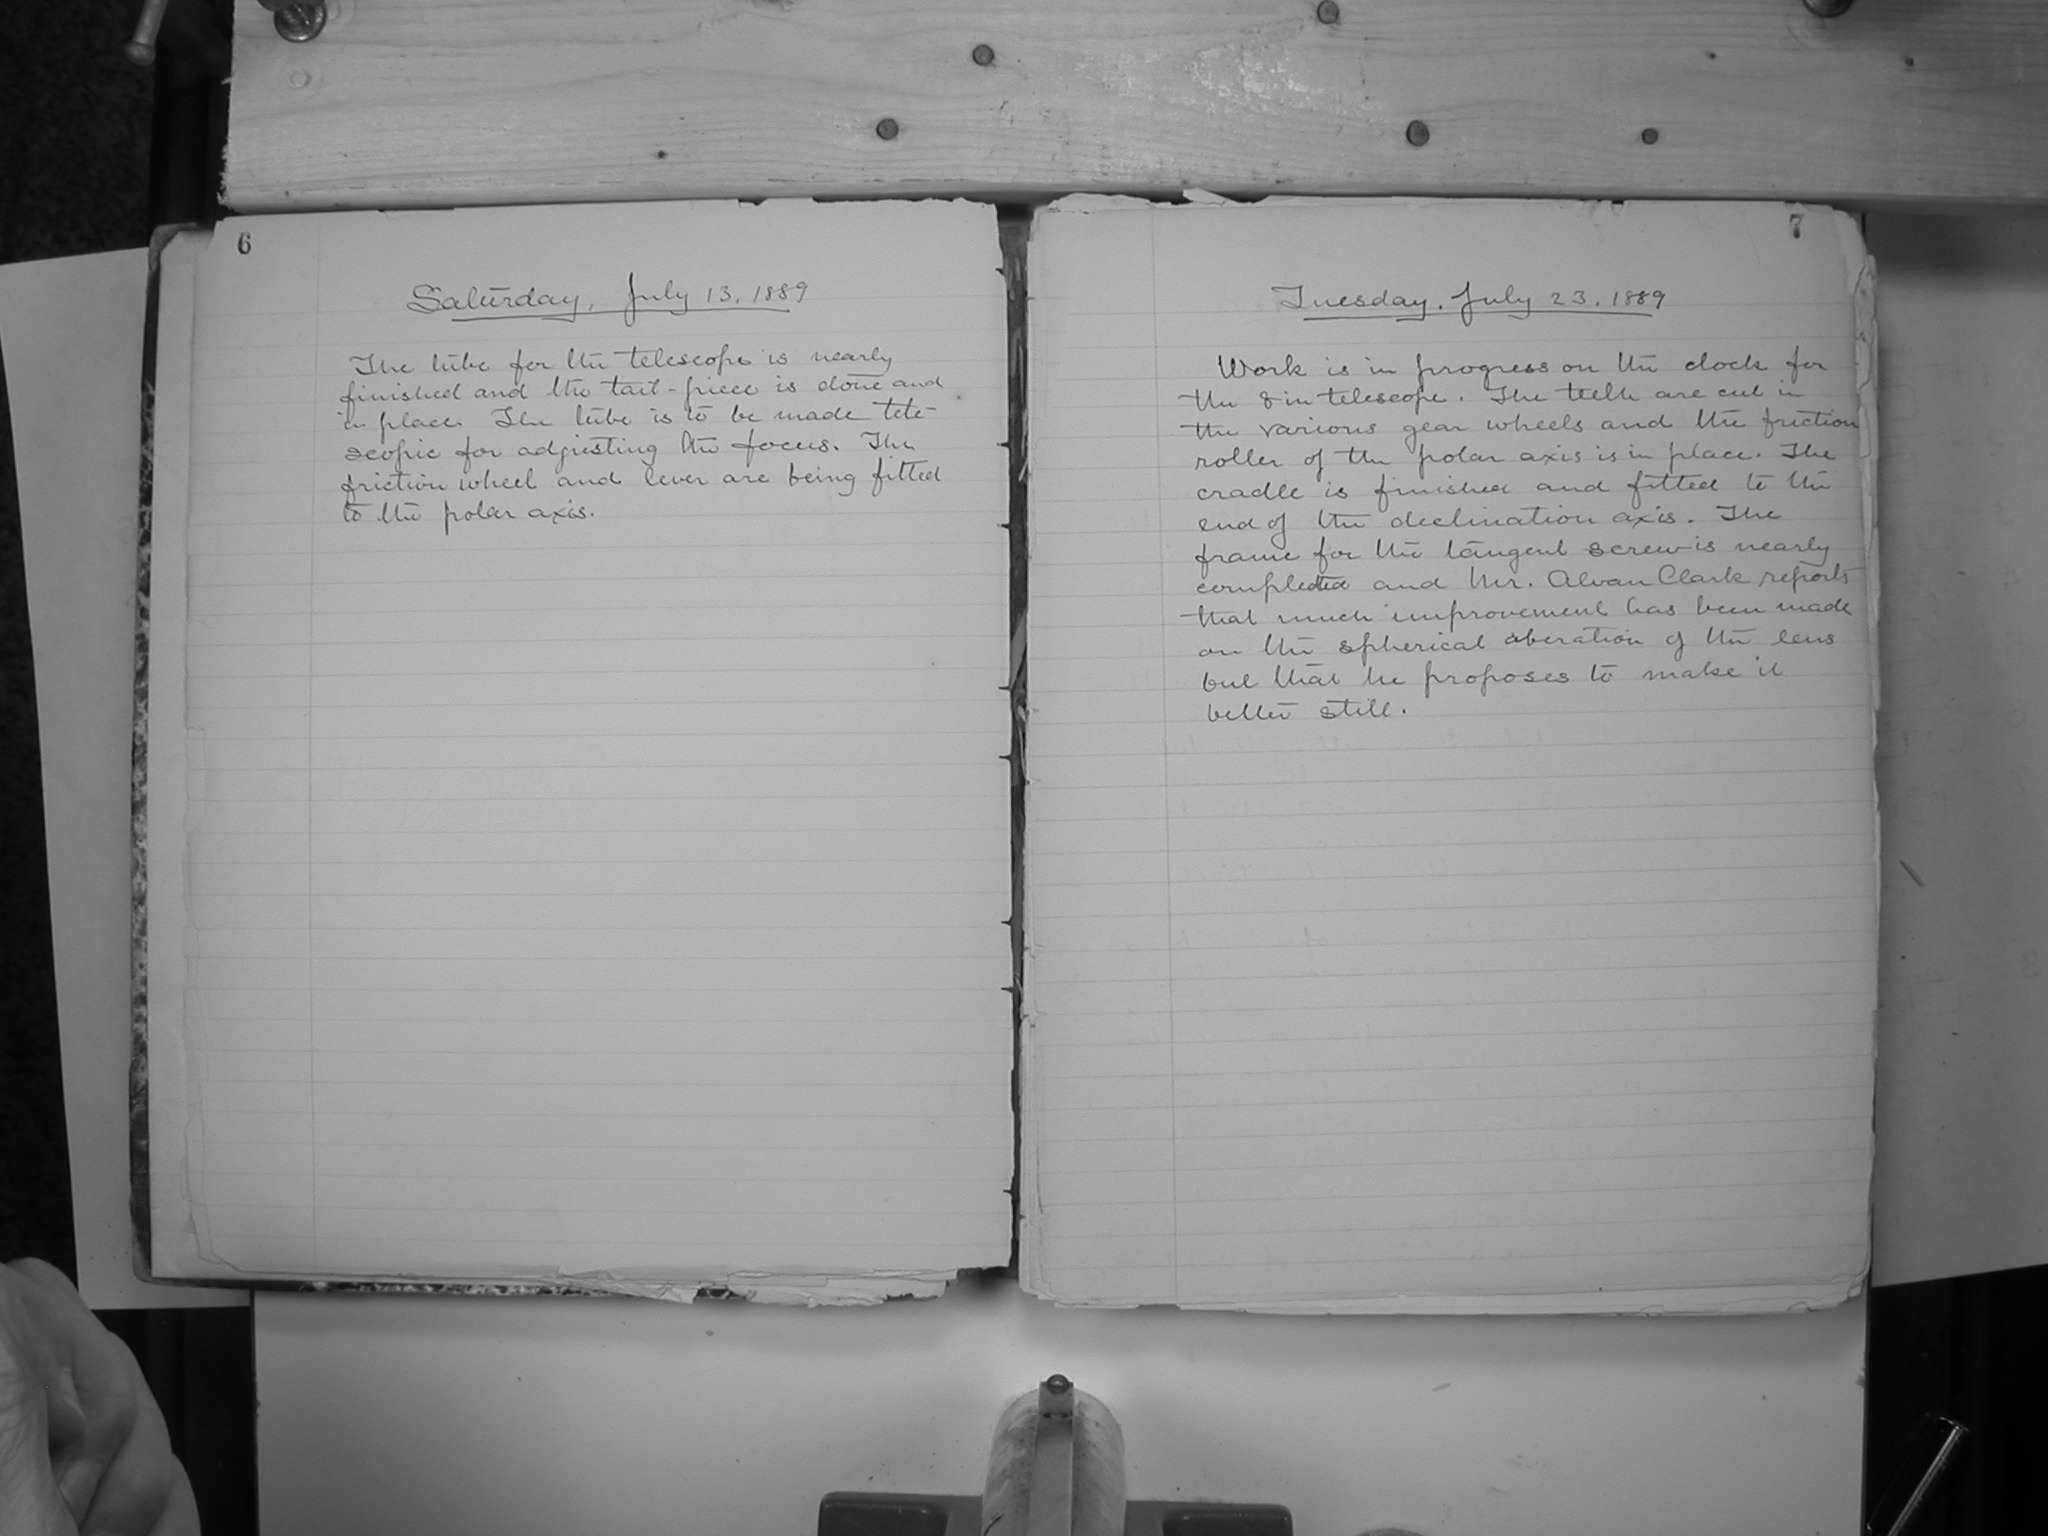 6
Saturday, July 13, 1889
The tube for the telescope is nearly
finished and the tail-piece is done and
in place. The tube is to be made tele-
scopic for adjusting the focus. The
friction wheel and lever are being fitted
to the polar axis.
7
Tuesday, July 23, 1889
Work is in progress on the clock for
the 8 in telescope. The teeth are cut in
the various gear wheels and the friction
roller of the polar axis is in place. The
cradle is finished and fitted to the
end of the declination axis. The
frame for the tangent screw is nearly
completed and Mr. Alvan Clark reports
that much improvement has been made
on the spherical aberation of the lens
but that he proposes to make it
better still.